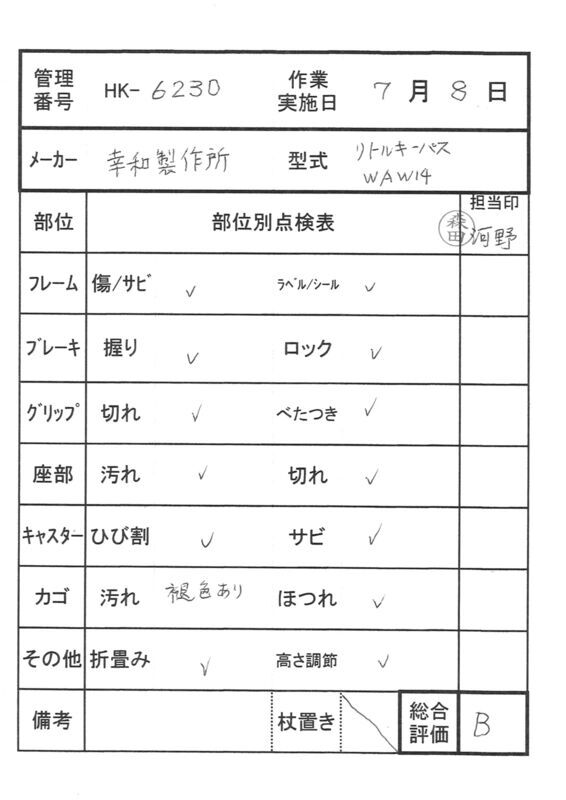 管理番号 HK- 6230 作業実施日 7 月 8 日
メーカー 幸和製作所 型式 リトルキーパス WAW14
部位 部位別点検表 担当印
森田 河野
フレーム 傷/サビ ✓ ラベル/シール ✓
ブレーキ 握り ✓ ロック ✓
グリップ 切れ ✓ べたつき ✓
座部 汚れ ✓ 切れ ✓
キャスター ひび割 ✓ サビ ✓
カゴ 汚れ 褪色あり ほつれ ✓
その他 折畳み ✓ 高さ調節 ✓
備考 杖置き 総合評価 B